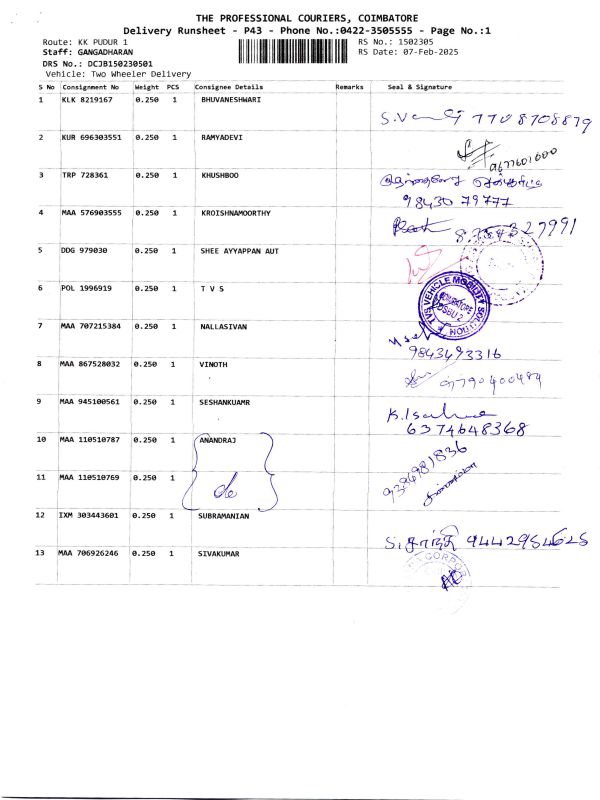 THE PROFESSIONAL COURIERS, COIMBATORE
Delivery Runsheet - P43 - Phone No.:0422-3505555 - Page No.:1
Route: KK PUDUR 1 RS No.: 1502305
Staff: GANGADHARAN RS Date: 07-Feb-2025
DRS No.: DCJB150230501
Vehicle: Two Wheeler Delivery
S No Consignment No Weight PCS Consignee Details Remarks Seal & Signature
1 KLK 8219167 0.250 1 BHUVANESHWARI
7708708879
2 KUR 696303551 0.250 1 RAMYADEVI
9677601000
3 TRP 728361 0.250 1 KHUSHBOO
98430 79777
4 MAA 576903555 0.250 1 KROISHNAMOORTHY
5 DDG 979030 0.250 1 SHEE AYYAPPAN AUT
6 POL 1996919 0.250 1 T V S
TVS VEHICLE MOBILITY SOLUTION
COIMBATORE
7 MAA 707215384 0.250 1 NALLASIVAN
9843493316
8 MAA 867528032 0.250 1 VINOTH
9790400484
9 MAA 945100561 0.250 1 SESHANKUAMR
6374648368
10 MAA 110510787 0.250 1 ANANDRAJ
9386981836
11 MAA 110510769 0.250 1
12 IXM 303443601 0.250 1 SUBRAMANIAN
S. சாந்தி 9442954625
13 MAA 706926246 0.250 1 SIVAKUMAR